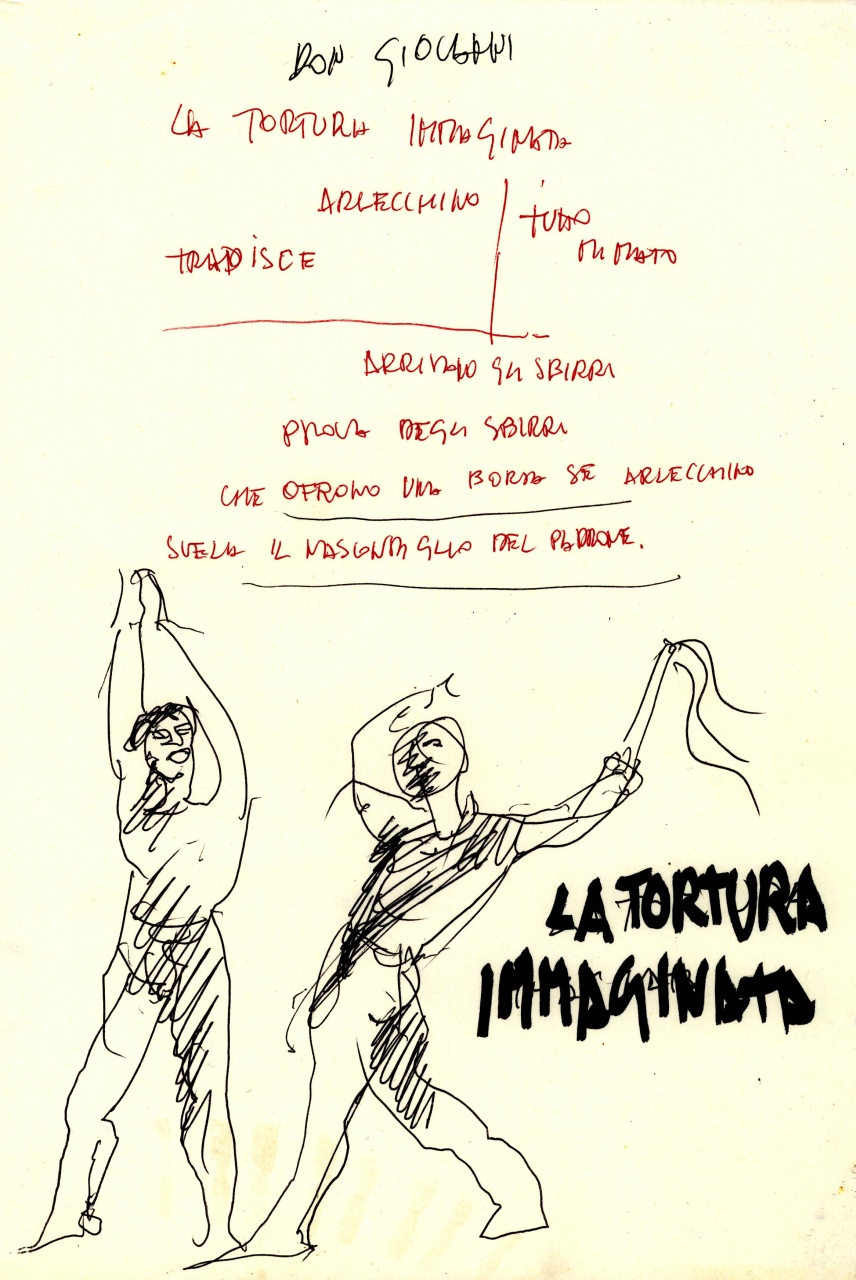 DON GIOVANNI
LA TORTURA IMMAGINATA
ARLECCHINO
TUTTO
TRADISCE
MIMATO
ARRIVANO GLI SBIRRI
PROVA DEGLI SBIRRI
CHE OFRONO UNA BORSA SE ARLECCHINO
SVELA IL NASCONDIGLIO DEL PADRONE.
LA TORTURA
IMMAGINATA